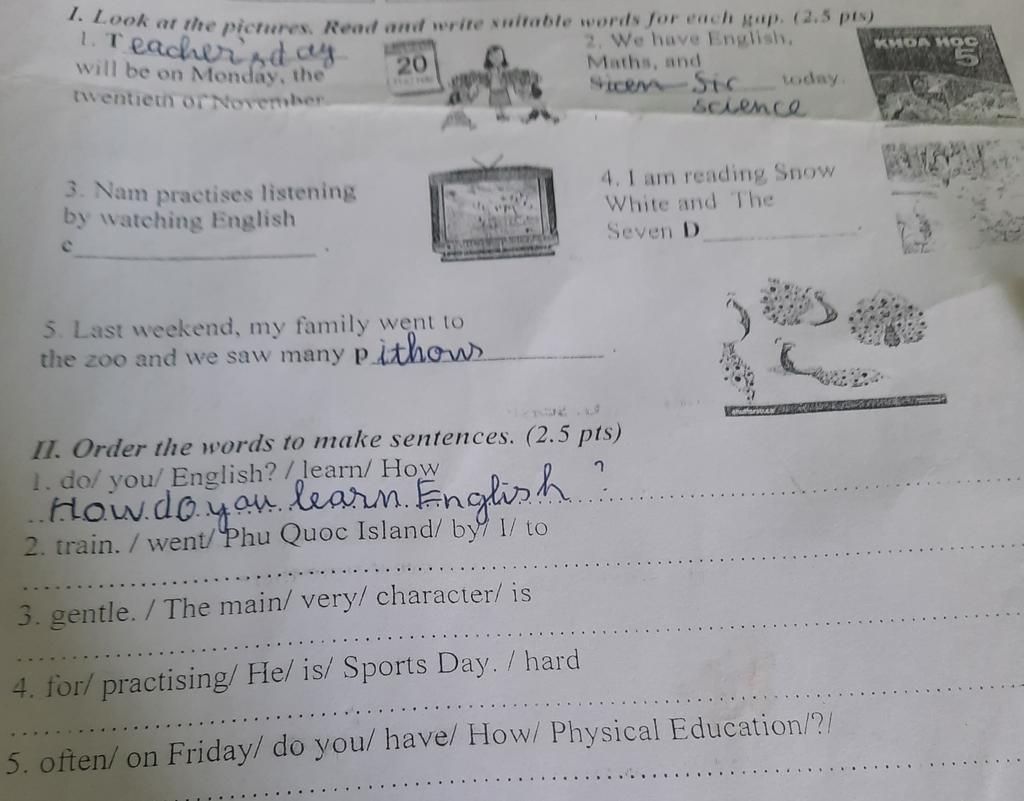 I. Look at the pictures. Read and write suitable words for each gap. (2.5 pts)
1. Teacher's day
will be on Monday, the
twentieth of November.
20
2. We have English,
Maths, and
Sicen Sic today.
science
KHOA HỌC
5
3. Nam practises listening
by watching English
c____________________ .
4. I am reading Snow
White and The
Seven D____________ .
5. Last weekend, my family went to
the zoo and we saw many pithows________ .
II. Order the words to make sentences. (2.5 pts)
1. do/ you/ English? / learn/ How
How do you learn English ?
2. train. / went/ Phu Quoc Island/ by/ I/ to
3. gentle. / The main/ very/ character/ is
4. for/ practising/ He/ is/ Sports Day. / hard
5. often/ on Friday/ do you/ have/ How/ Physical Education/?/